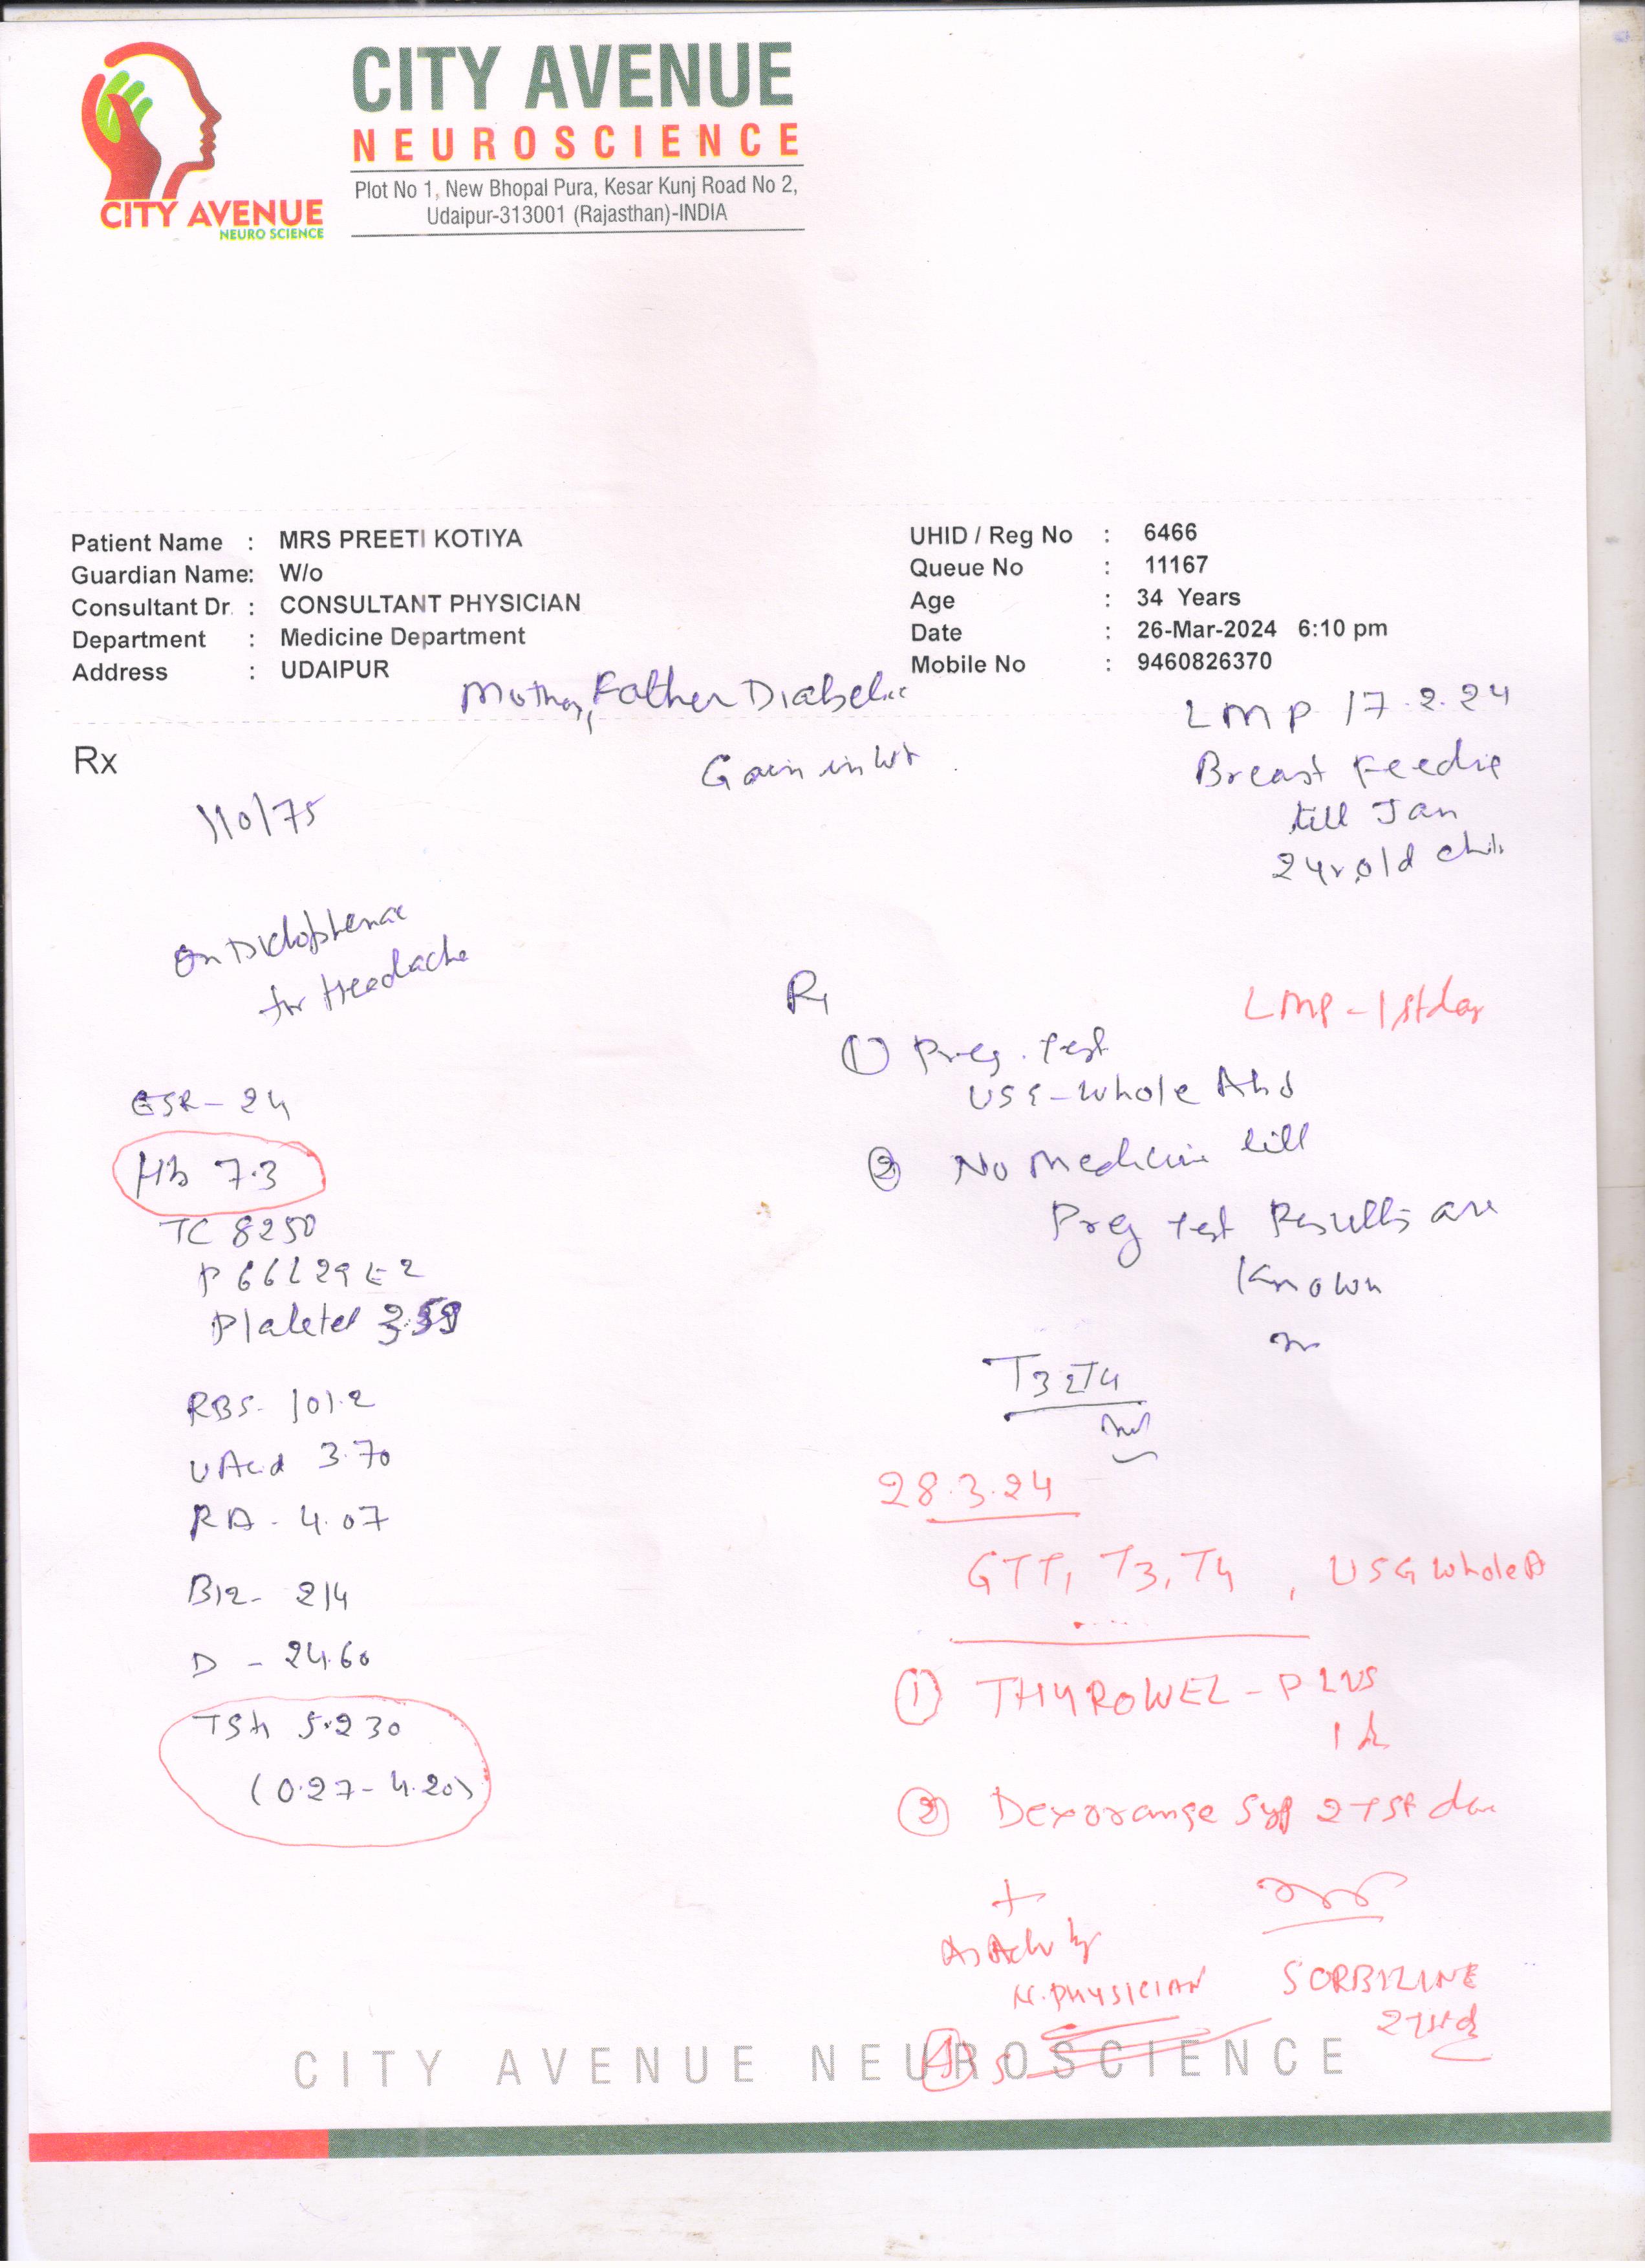 CITY AVENUE
NEURO SCIENCE
CITY AVENUE
NEUROSCIENCE
Plot No 1, New Bhopal Pura, Kesar Kunj Road No 2,
Udaipur-313001 (Rajasthan)-INDIA
Patient Name : MRS PREETI KOTIYA
Guardian Name: W/o
Consultant Dr. : CONSULTANT PHYSICIAN
Department : Medicine Department
Address : UDAIPUR
UHID / Reg No : 6466
Queue No : 11167
Age : 34 Years
Date : 26-Mar-2024 6:10 pm
Mobile No : 9460826370
Mother, Father Diabetic
Gain in Wt
LMP 17.2.24
Breast Feedig
till Jan
2 yr old
Rx
110/75
On Diclophenac
for Headache
ESR - 24
Hb 7.3
TC 8250
P 66 L 29 E 2
Platelet
RBS - 101.2
U Acid 3.70
RA - 4.07
B12 - 214
D - 24.60
TSH 5.230
(0.27 - 4.20)
LMP - 1st day
R
① Preg. Test
USG - Whole Abd
② No Medicine till
Preg Test Results are
Known
T3 T4
28.3.24
GTT, T3, T4, USG Whole A
① THYROWEL - PLUS
② Dexorange Syp 2 TSF
+
As Adv by
N. PHYSICIAN
SORBILINE
CITY AVENUE NEUROSCIENCE